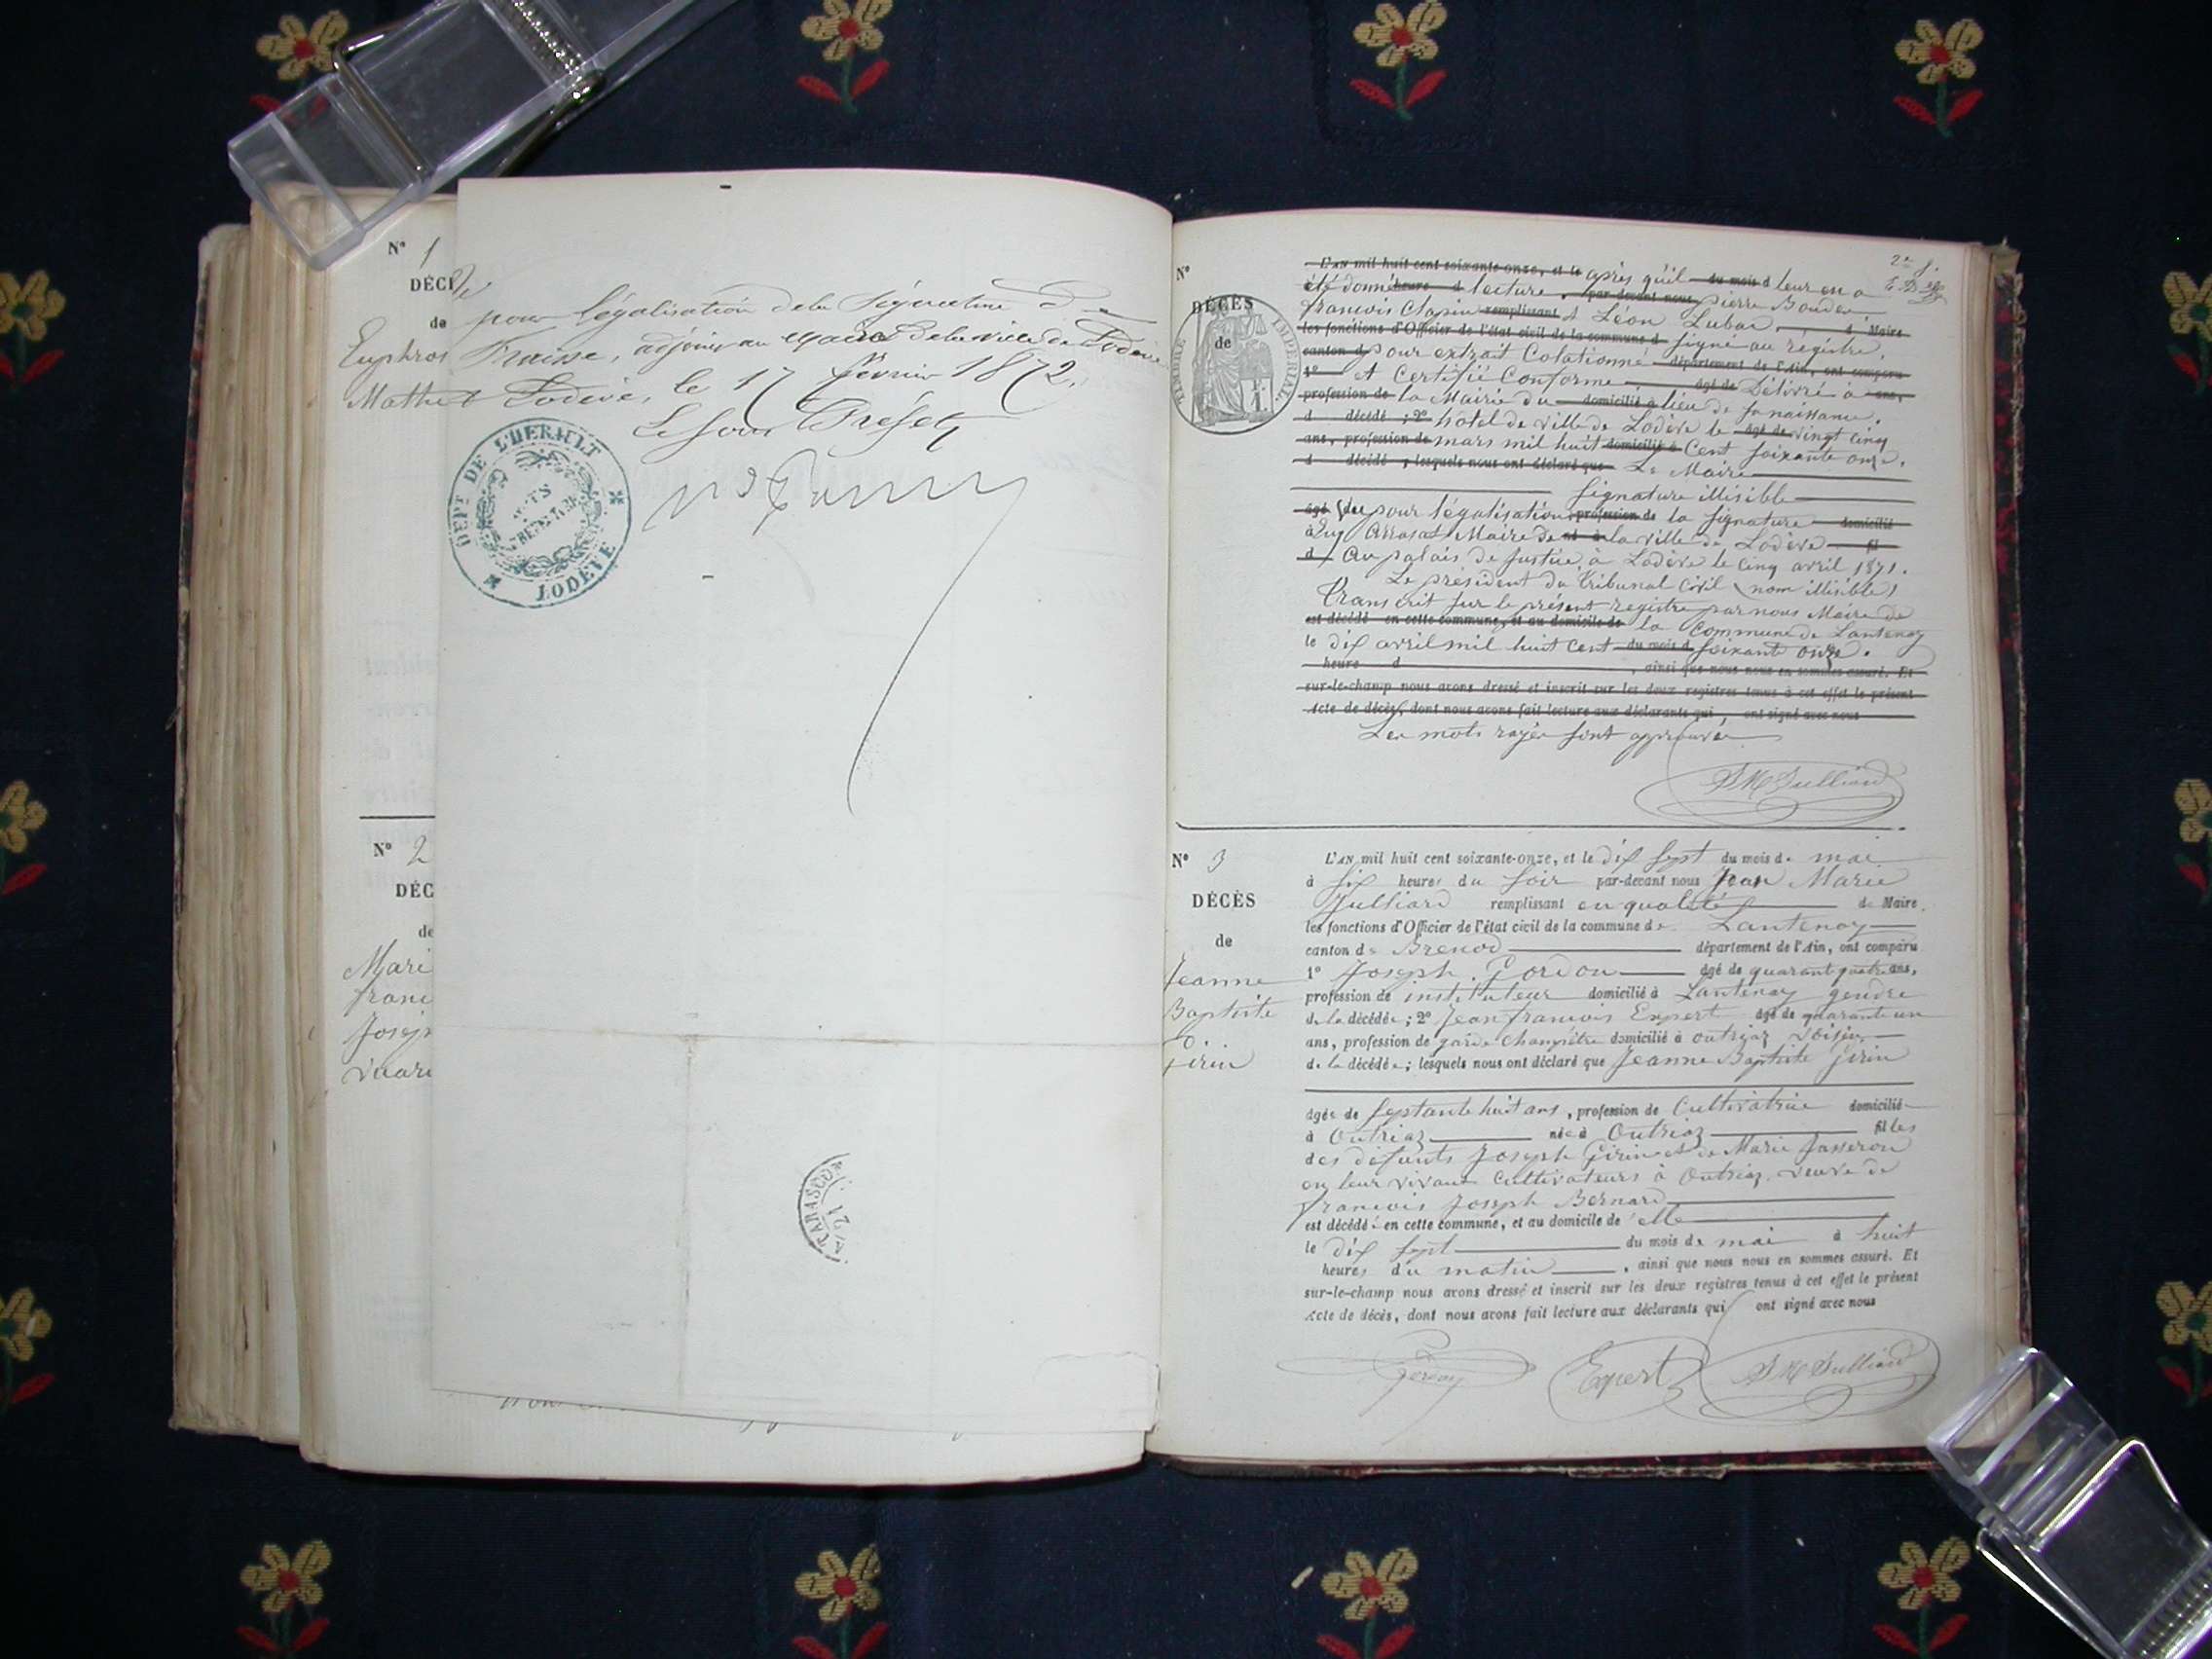 N° 1
DÉCÈ
de
Euphros
Mathe
N° 2
DÉC
de
Mari
franc
Josep
Vu pour légalisation de la signature de
Fraisse, adjoint au maire de la ville de Lodève
Lodève, le 17 février 1872.
Le Sous Préfet
DEPT DE L'HERAULT
LODÈVE
TARASCON
21
N°
DÉCÈS
de
TIMBRE IMPERIAL
2e f.
L'AN mil huit cent soixante-onze, et le après qu'il du mois d leur en a
été donné heure d lecture. par-devant nous pierre Boudou
françois Clapier remplissant et Léon Lubac d Maire
les fonctions d'Officier de l'état civil de la commune d signé au régistre.
canton d pour extrait Colationné département de l'Ain, ont comparu
1° et Certifié Conforme âgé de Délivré à ans,
profession de la Mairie du domicilié à lieu de sa naissance.
d décédé ; 2° hotel de ville de Lodève le âgé de vingt cinq
ans, profession de mars mil huit domicilié à Cent soixante onze.
d décédé ; lesquels nous ont déclaré que Le Maire
Signature illisible
âgé de Vu pour légalisation profession de la signature domicilié
à Arrasat Maire de né à la ville de Lodève fil
d au palais de justice à Lodève le cinq avril 1871.
Le président du tribunal civil (nom illisible)
Transcrit sur le présent registre par nous Maire de
est décédé en cette commune, et au domicile de la commune de Lantenay
le dix avril mil huit cent du mois d soixante onze.
heure d , ainsi que nous nous en sommes assuré. Et
sur-le-champ nous avons dressé et inscrit sur les deux registres tenus à cet effet le présent
Acte de décès, dont nous avons fait lecture aux déclarants qui ont signé avec nous
Les mots rayés sont approuvés
J M Julliard
N° 3
DÉCÈS
de
Jeanne
Baptiste
Girin
L'AN mil huit cent soixante-onze, et le dix sept du mois de mai
à six heures du soir par-devant nous Jean Marie
Julliard remplissant en qualité de Maire
les fonctions d'Officier de l'état civil de la commune de Lantenay
canton de Brenod département de l'Ain, ont comparu
1° Joseph Gordou âgé de quarante quatre ans,
profession de instituteur domicilié à Lantenay gendre
de la décédée ; 2° Jean françois Expert âgé de quarante un
ans, profession de garde champêtre domicilié à outriaz voisin
de la décédée ; lesquels nous ont déclaré que Jeanne Baptiste Girin
âgée de septante huit ans, profession de Cultivatrice domiciliée
à Outriaz née à Outriaz filles
des défunts Joseph Girin et de Marie Jasseron
en leur vivant Cultivateurs à Outriaz. veuve de
françois Joseph Bernard
est décédée en cette commune, et au domicile de elle
le dix sept du mois de mai à huit
heures du matin , ainsi que nous nous en sommes assuré. Et
sur-le-champ nous avons dressé et inscrit sur les deux registres tenus à cet effet le présent
Acte de décès, dont nous avons fait lecture aux déclarants qui ont signé avec nous
Expert
J M Julliard